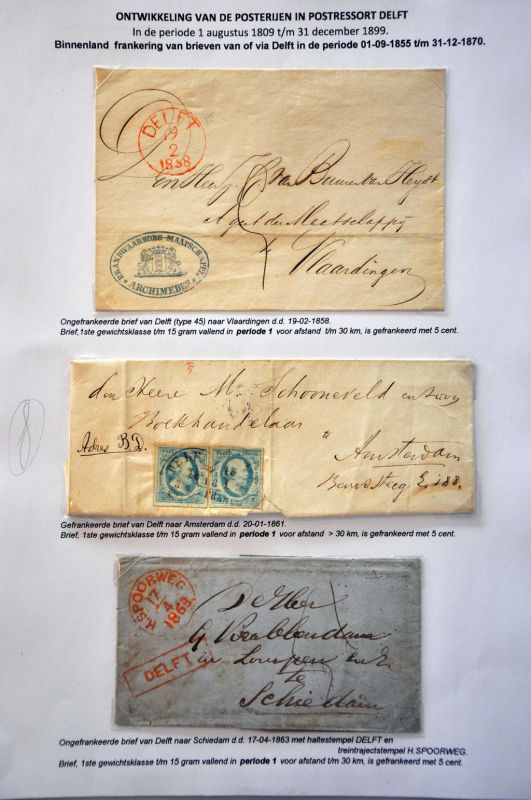 ONTWIKKELING VAN DE POSTERIJEN IN POSTRESSORT DELFT
In de periode 1 augustus 1809 t/m 31 december 1899.
Binnenland frankering van brieven van of via Delft in de periode 01-09-1855 t/m 31-12-1870.
DELFT
19
2
1858
van Buuren van Heyst
Agent der Maatschappij
te
Vlaardingen
BRANDWAARBORG-MAATSCHAPPIJ
ARCHIMEDES
Ongefrankeerde brief van Delft (type 45) naar Vlaardingen d.d. 19-02-1858.
Brief,1ste gewichtsklasse t/m 15 gram vallend in periode 1 voor afstand t/m 30 km, is gefrankeerd met 5 cent.
den Heere M. Schooneveld en Zoon
Boekhandelaar
Adres B.D.
te
Amsterdam
E 188.
Gefrankeerde brief van Delft naar Amsterdam d.d. 20-01-1861.
Brief, 1ste gewichtsklasse t/m 15 gram vallend in periode 1 voor afstand > 30 km, is gefrankeerd met 5 cent.
H.SPOORWEG
17
4
1863
DELFT
De Heer
in
te
Schiedam
Ongefrankeerde brief van Delft naar Schiedam d.d. 17-04-1863 met haltestempel DELFT en
treintrajectstempel H.SPOORWEG.
Brief, 1ste gewichtsklasse t/m 15 gram vallend in periode 1 voor afstand t/m 30 km, is gefrankeerd met 5 cent.
8